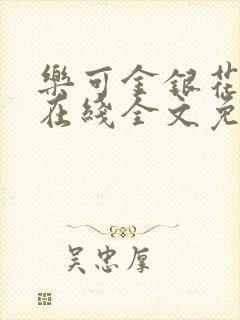 樂可金銀花
在綫全文免
吴忠厚